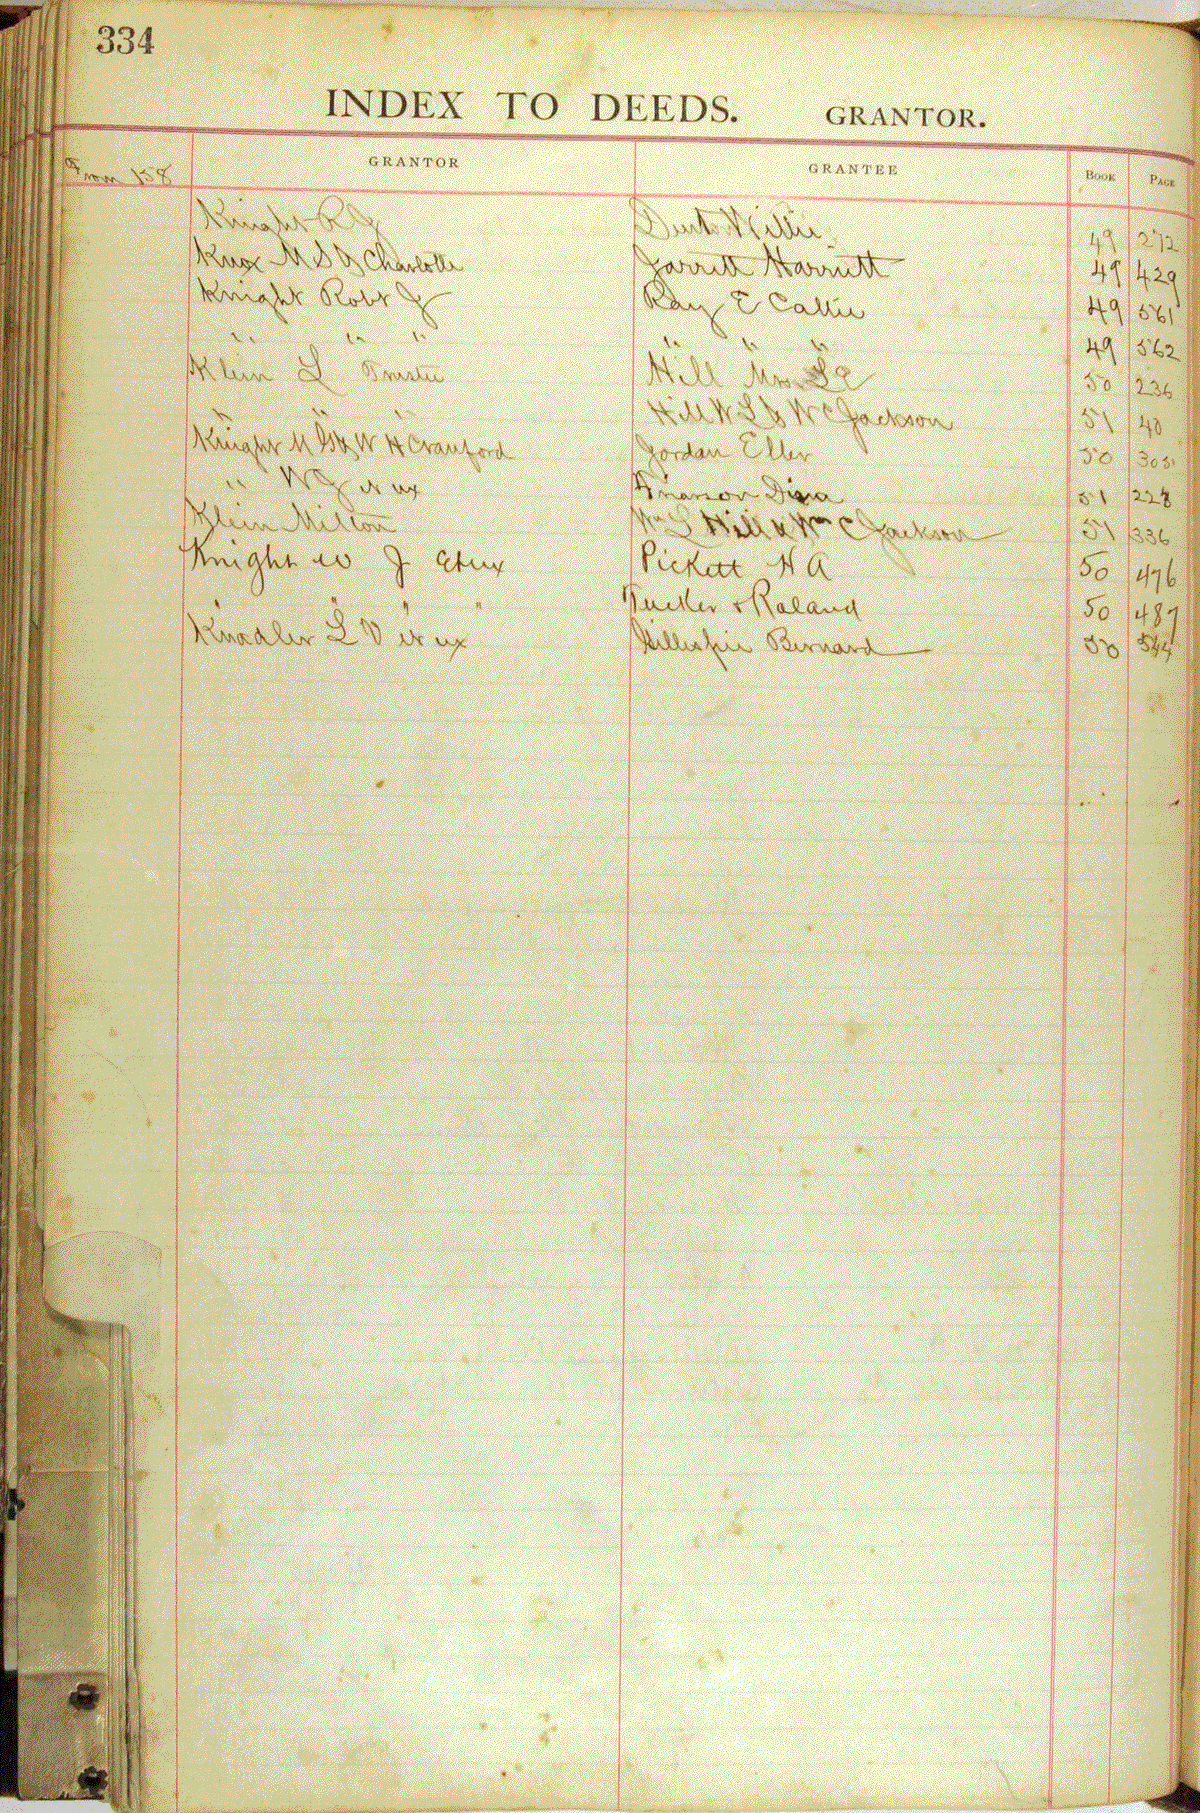 334
INDEX TO DEEDS. GRANTOR.
From 158 GRANTOR GRANTEE BOOK PAGE
Knight R J Willie 49 272
Knox M S & Charlotte Jarrett Harriett 49 429
Knight Robt J Ray E Callie 49 561
" " " " " " 49 562
Klein L Trustee Hill Mrs 50 236
" " " Hill W L & W C Jackson 51 40
Knight M & W H Cranford Jordan Ellen 50 305
" W J et ux Dina 51 228
Klein Milton Wm L Hill & Wm C Jackson 51 336
Knight W J Etux Pickett H A 50 476
" " " " Tucker & Roland 50 487
Knadler L V et ux Gillespie Bernard 50 544